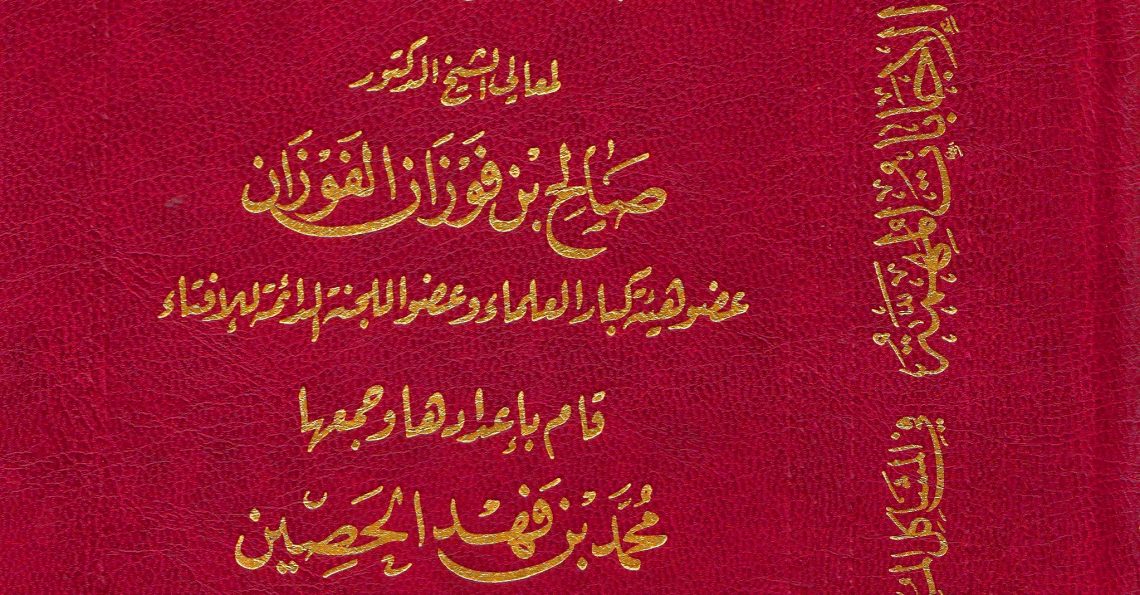 لمعالي الشيخ الدكتور
صَالِح بْن فَوْزَان الفَوْزَان
عضو هيئة كبار العلماء وعضو اللجنة الدائمة للإفتاء
قام بإعدادها وجمعها
مُحَمَّد بْن فَهْد الحَصِيّن
الإِجَابَاتُ المُهِمَّةُ
في المشاكل